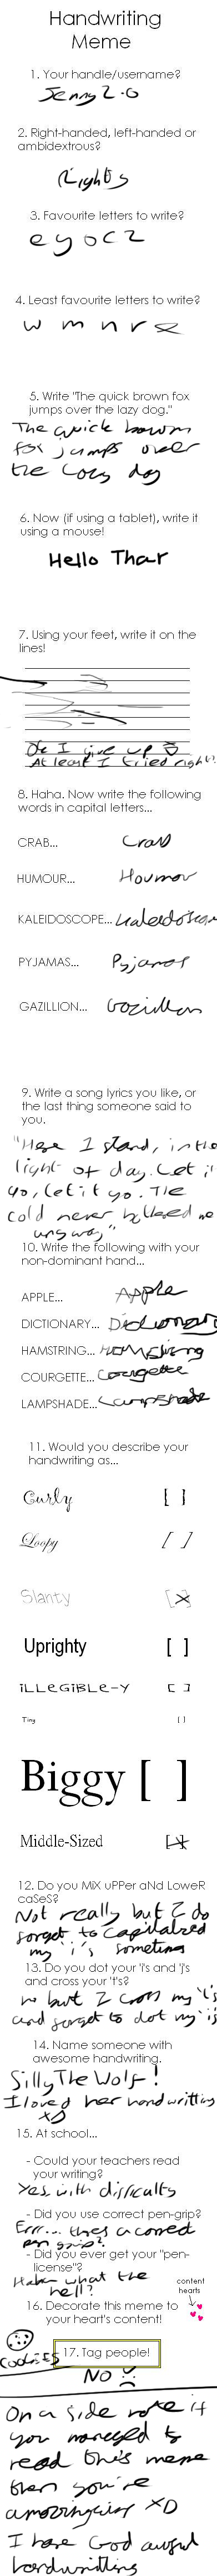 Handwriting
Meme
1. Your handle/username?
Jenny2.0
2. Right-handed, left-handed or
ambidextrous?
Rights
3. Favourite letters to write?
e y o c z
4. Least favourite letters to write?
w m n r
5. Write "The quick brown fox
jumps over the lazy dog."
The quick brown
fox jumps over
the lazy dog
6. Now (if using a tablet), write it
using a mouse!
Hello Thar
7. Using your feet, write it on the
lines!
Ok I give up
At least I tried right?
8. Haha. Now write the following
words in capital letters...
CRAB... Crab
HUMOUR... Houmor
KALEIDOSCOPE... Kaleidoscope
PYJAMAS... Pyjamas
GAZILLION... Gozillion
9. Write a song lyrics you like, or
the last thing someone said to
you.
"Here I stand, in the
light of day. Let it
go, let it go. The
cold never bothered me
anyway"
10. Write the following with your
non-dominant hand...
APPLE... Apple
DICTIONARY... Dictionary
HAMSTRING... HAMstring
COURGETTE... Courgette
LAMPSHADE... Lampshade
11. Would you describe your
handwriting as...
Curly [ ]
Loopy [ ]
Slanty [X]
Uprighty [ ]
iLLeGiBLe-Y [ ]
Tiny [ ]
Biggy [ ]
Middle-Sized [X]
12. Do you MiX uPPer aNd LoweR
caSeS?
Not really but I do
forget to capitalized
my 'i's sometimes
13. Do you dot your 'i's and 'j's
and cross your 't's?
no but I cross my 't's
and forget to dot my 'i's
14. Name someone with
awesome handwriting.
SillyTheWolf!
I loved her handwritting
XD
15. At school...
- Could your teachers read
your writing?
Yes, with difficulty
- Did you use correct pen-grip?
Errr... theres a correct
pen grip?
- Did you ever get your "pen-
license"?
Haha what the
hell?
16. Decorate this meme to
your heart's content!
content
hearts
Cookies
17. Tag people!
NO!
On a side note if
you managed to
read this meme
then you're
amazing XD
I have God awful
handwritting